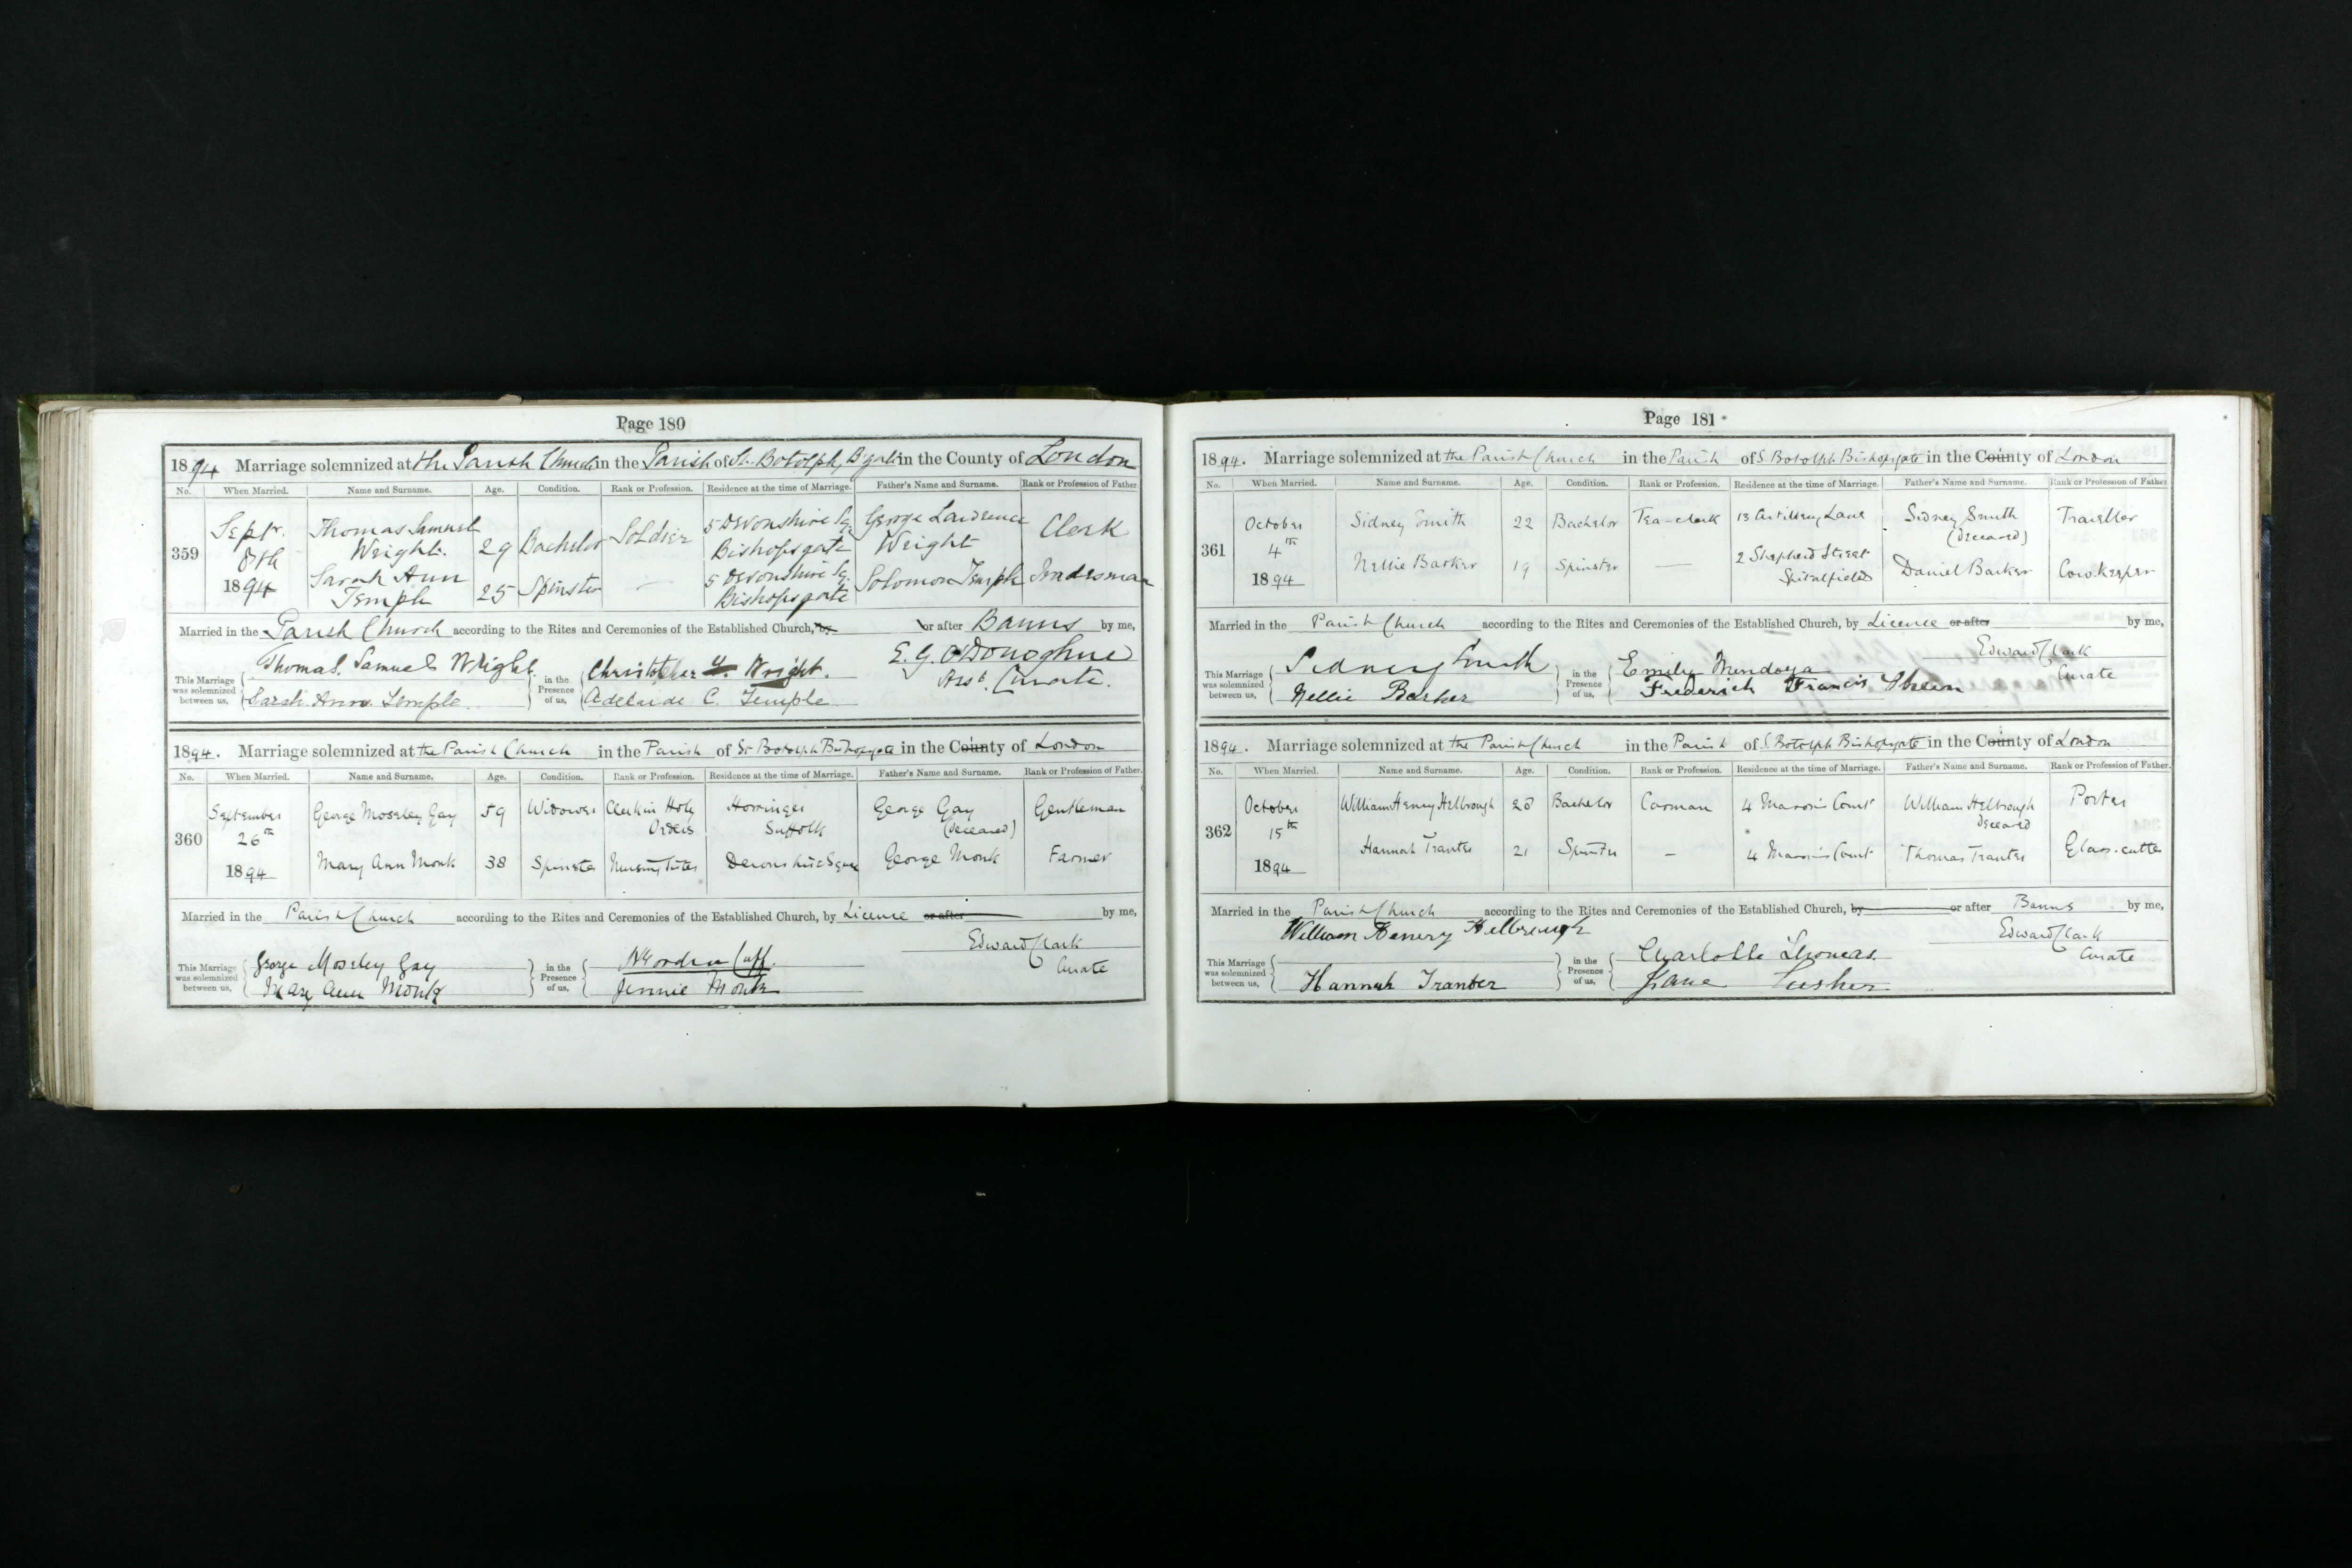 Page 180
1894 Marriage solemnized at the Parish Church in the Parish of St. Botolph, B'gate in the County of London
No. When Married. Name and Surname. Age. Condition. Rank or Profession. Residence at the time of Marriage. Father's Name and Surname. Rank or Profession of Father.
359 Sept. 8th 1894
Thomas Samuel Wright. 29 Bachelor Soldier 5 Devonshire Sq. Bishopsgate George Lawrence Wright Clerk
Sarah Ann Temple 25 Spinster — 5 Devonshire Sq. Bishopsgate Solomon Temple Tradesman
Married in the Parish Church according to the Rites and Ceremonies of the Established Church, by or after Banns by me,
This Marriage was solemnized between us, Thomas Samuel Wright. in the Presence of us, Christopher Wright. E. G. O'Donoghue
Sarah Ann Temple. Adelaide C. Temple Asst. Curate.
1894. Marriage solemnized at the Parish Church in the Parish of St Botolph Bishopsgate in the County of London
No. When Married. Name and Surname. Age. Condition. Rank or Profession. Residence at the time of Marriage. Father's Name and Surname. Rank or Profession of Father.
360 September 26th 1894
George Moseley Gay 59 Widower Clerk in Holy Orders Horringer Suffolk George Gay (deceased) Gentleman
Mary Ann Monk 38 Spinster Nursing Sister Devonshire Square George Monk Farmer
Married in the Parish Church according to the Rites and Ceremonies of the Established Church, by Licence or after by me,
This Marriage was solemnized between us, George Moseley Gay in the Presence of us, Edward Clark
Mary Ann Monk Jennie Monk Curate
Page 181
1894. Marriage solemnized at the Parish Church in the Parish of S. Botolph Bishopsgate in the County of London
No. When Married. Name and Surname. Age. Condition. Rank or Profession. Residence at the time of Marriage. Father's Name and Surname. Rank or Profession of Father.
361 October 4th 1894
Sidney Smith 22 Bachelor Tea-clerk 13 Artillery Lane Sidney Smith (deceased) Traveller
Nellie Barker 19 Spinster — 2 Shepherd Street Spitalfields Daniel Barker Cowkeeper
Married in the Parish Church according to the Rites and Ceremonies of the Established Church, by Licence or after by me,
This Marriage was solemnized between us, Sidney Smith in the Presence of us, Emily Mendoza Edward Clark
Nellie Barker Frederick Francis Curate
1894. Marriage solemnized at the Parish Church in the Parish of S. Botolph Bishopsgate in the County of London
No. When Married. Name and Surname. Age. Condition. Rank or Profession. Residence at the time of Marriage. Father's Name and Surname. Rank or Profession of Father.
362 October 15th 1894
William Henry Helbrough 28 Bachelor Carman 4 Court William Helbrough deceased Porter
Hannah Tranter 21 Spinster — 4 Court Thomas Tranter Glass-cutter
Married in the Parish Church according to the Rites and Ceremonies of the Established Church, by or after Banns by me,
This Marriage was solemnized between us, William Henery Helbrough in the Presence of us, Charlotte Thomas Edward Clark
Hannah Tranter Jane Lusher Curate